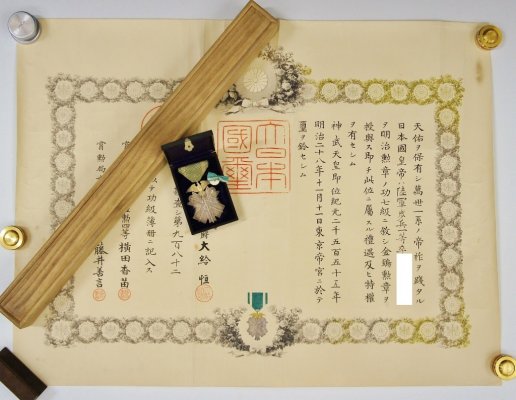 天佑ヲ保有シ萬世一系ノ帝祚ヲ踐タル
日本國皇帝ハ陸軍歩兵一等
ヲ明治勲章ノ功七級ニ敍シ金鵄勲章ヲ
授與ス即チ此位ニ屬スル禮遇及ヒ特權
ヲ有セシム
神武天皇即位紀元二千五百五十五年
明治二十八年十一月十一日東京帝宮ニ於テ
璽ヲ鈐セシム
大日本
國璽
大給恒
第九百八十二
功級簿冊ニ記入ス
勲四等横田香苗
賞勲局
藤井善言